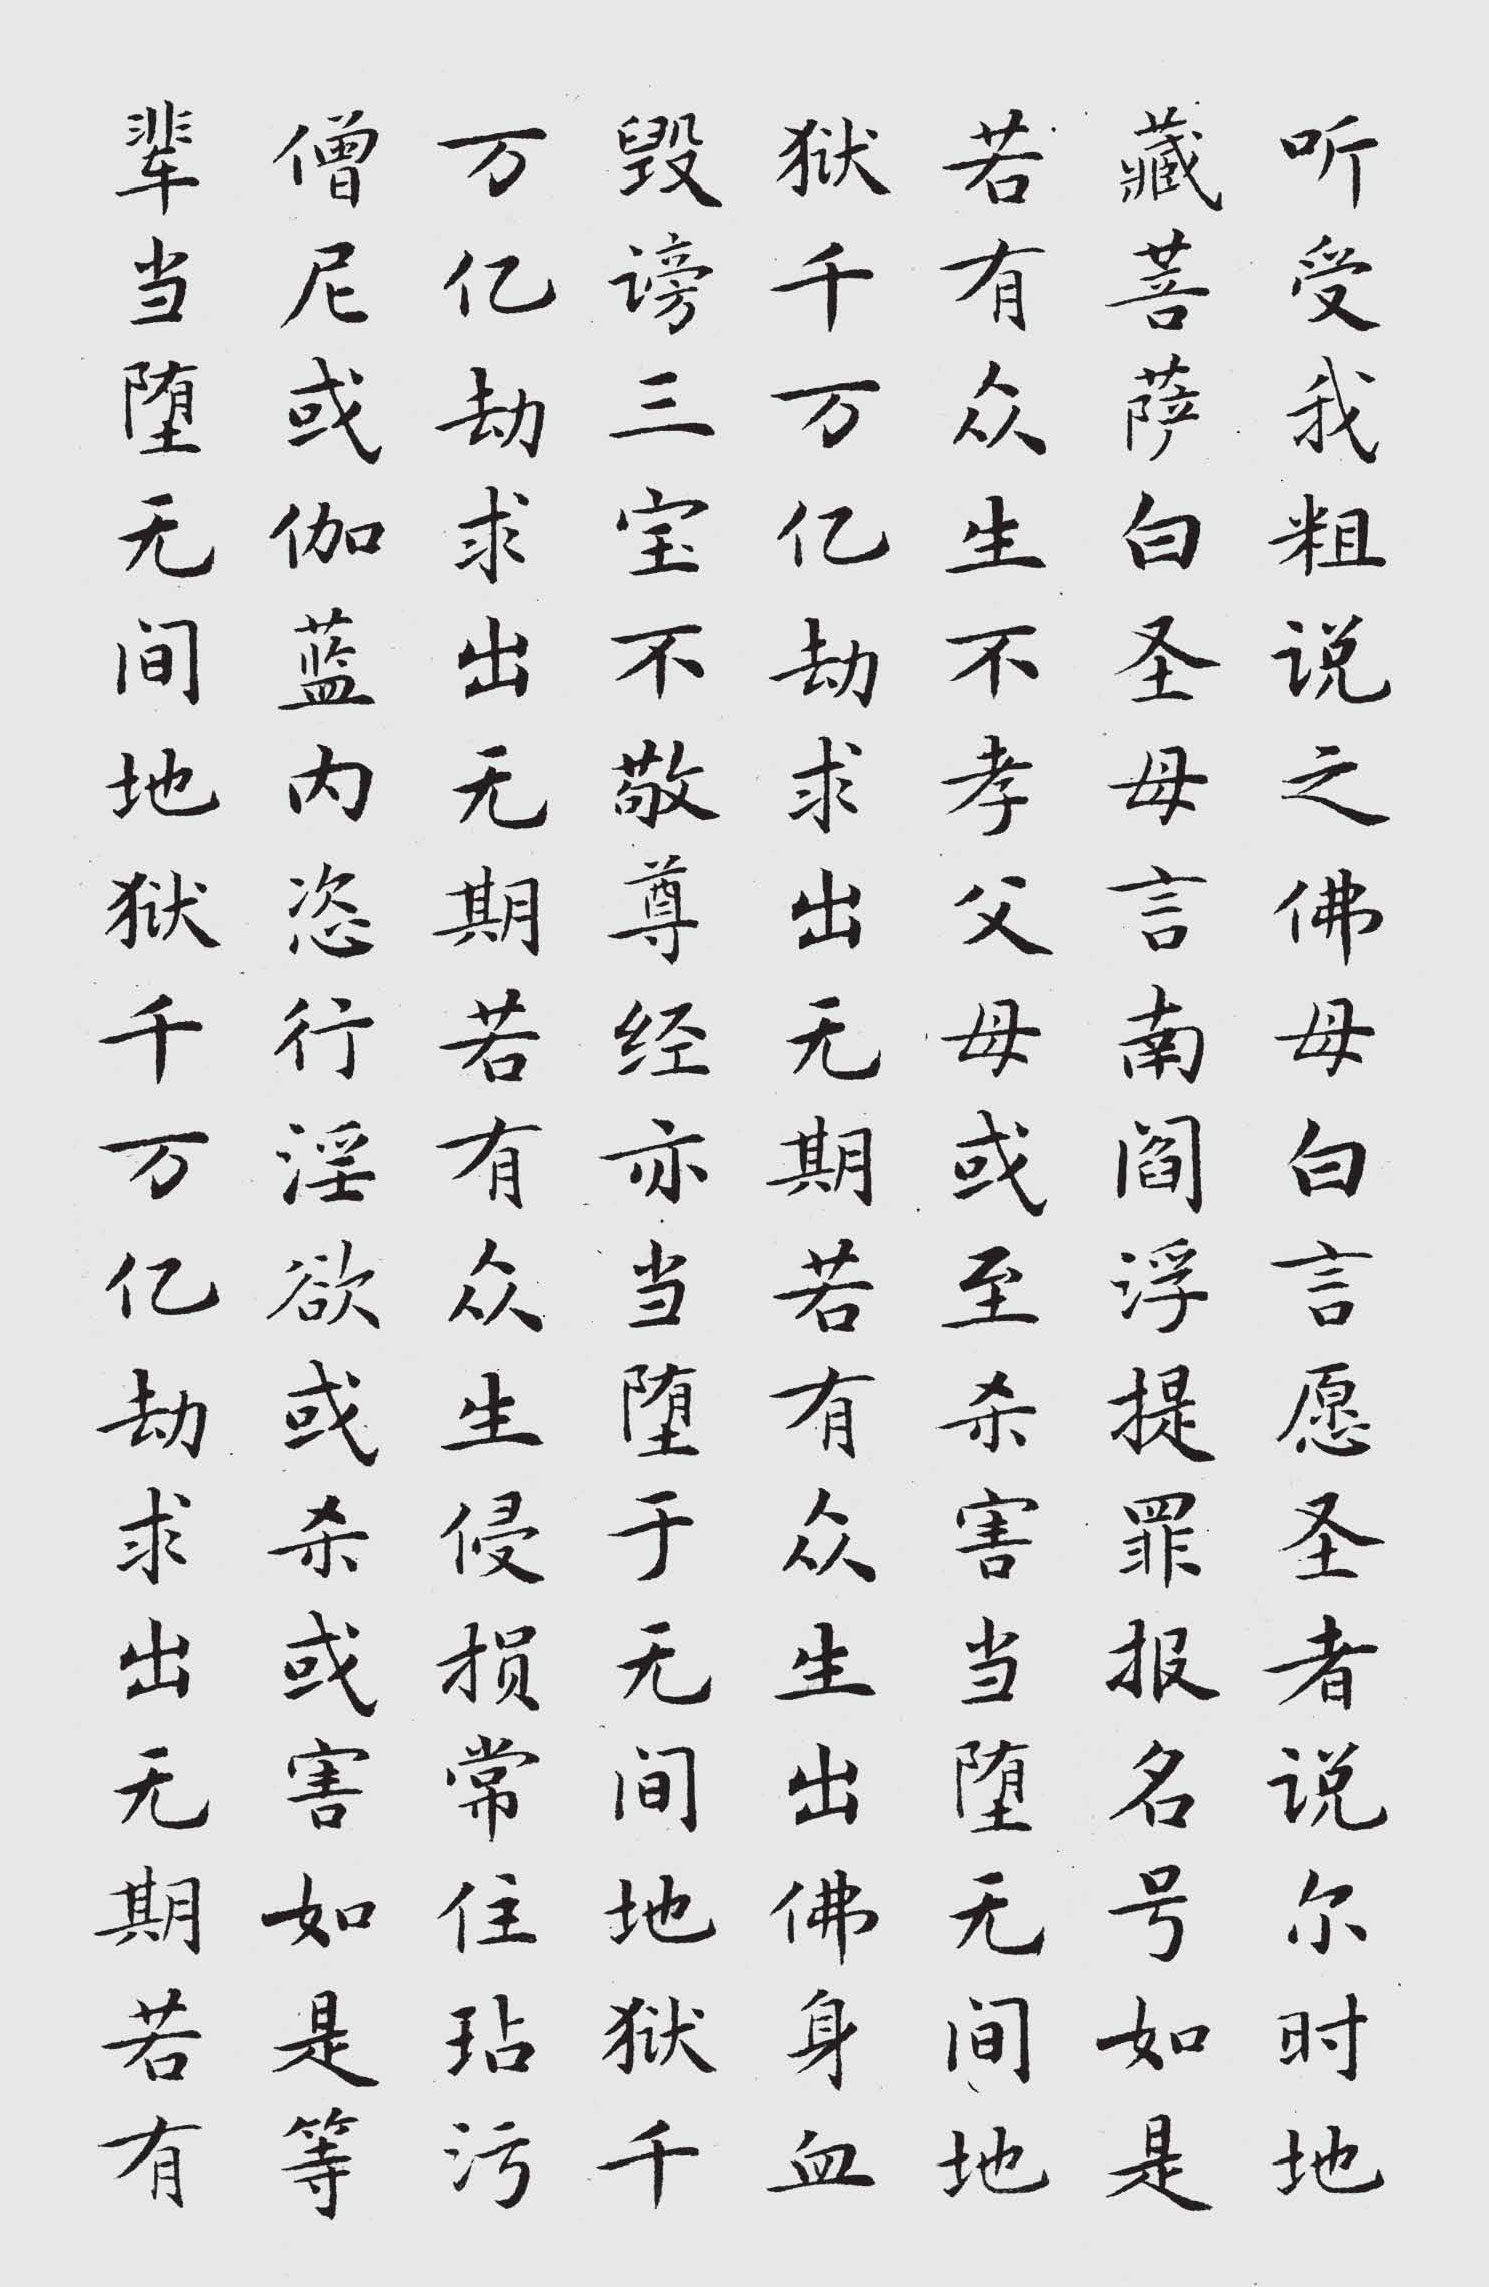 听受我粗说之佛母白言愿圣者说尔时地
藏菩萨白圣母言南阎浮提罪报名号如是
若有众生不孝父母或至杀害当堕无间地
狱千万亿劫求出无期若有众生出佛身血
毁谤三宝不敬尊经亦当堕于无间地狱千
万亿劫求出无期若有众生侵损常住玷污
僧尼或伽蓝内恣行淫欲或杀或害如是等
辈当堕无间地狱千万亿劫求出无期若有